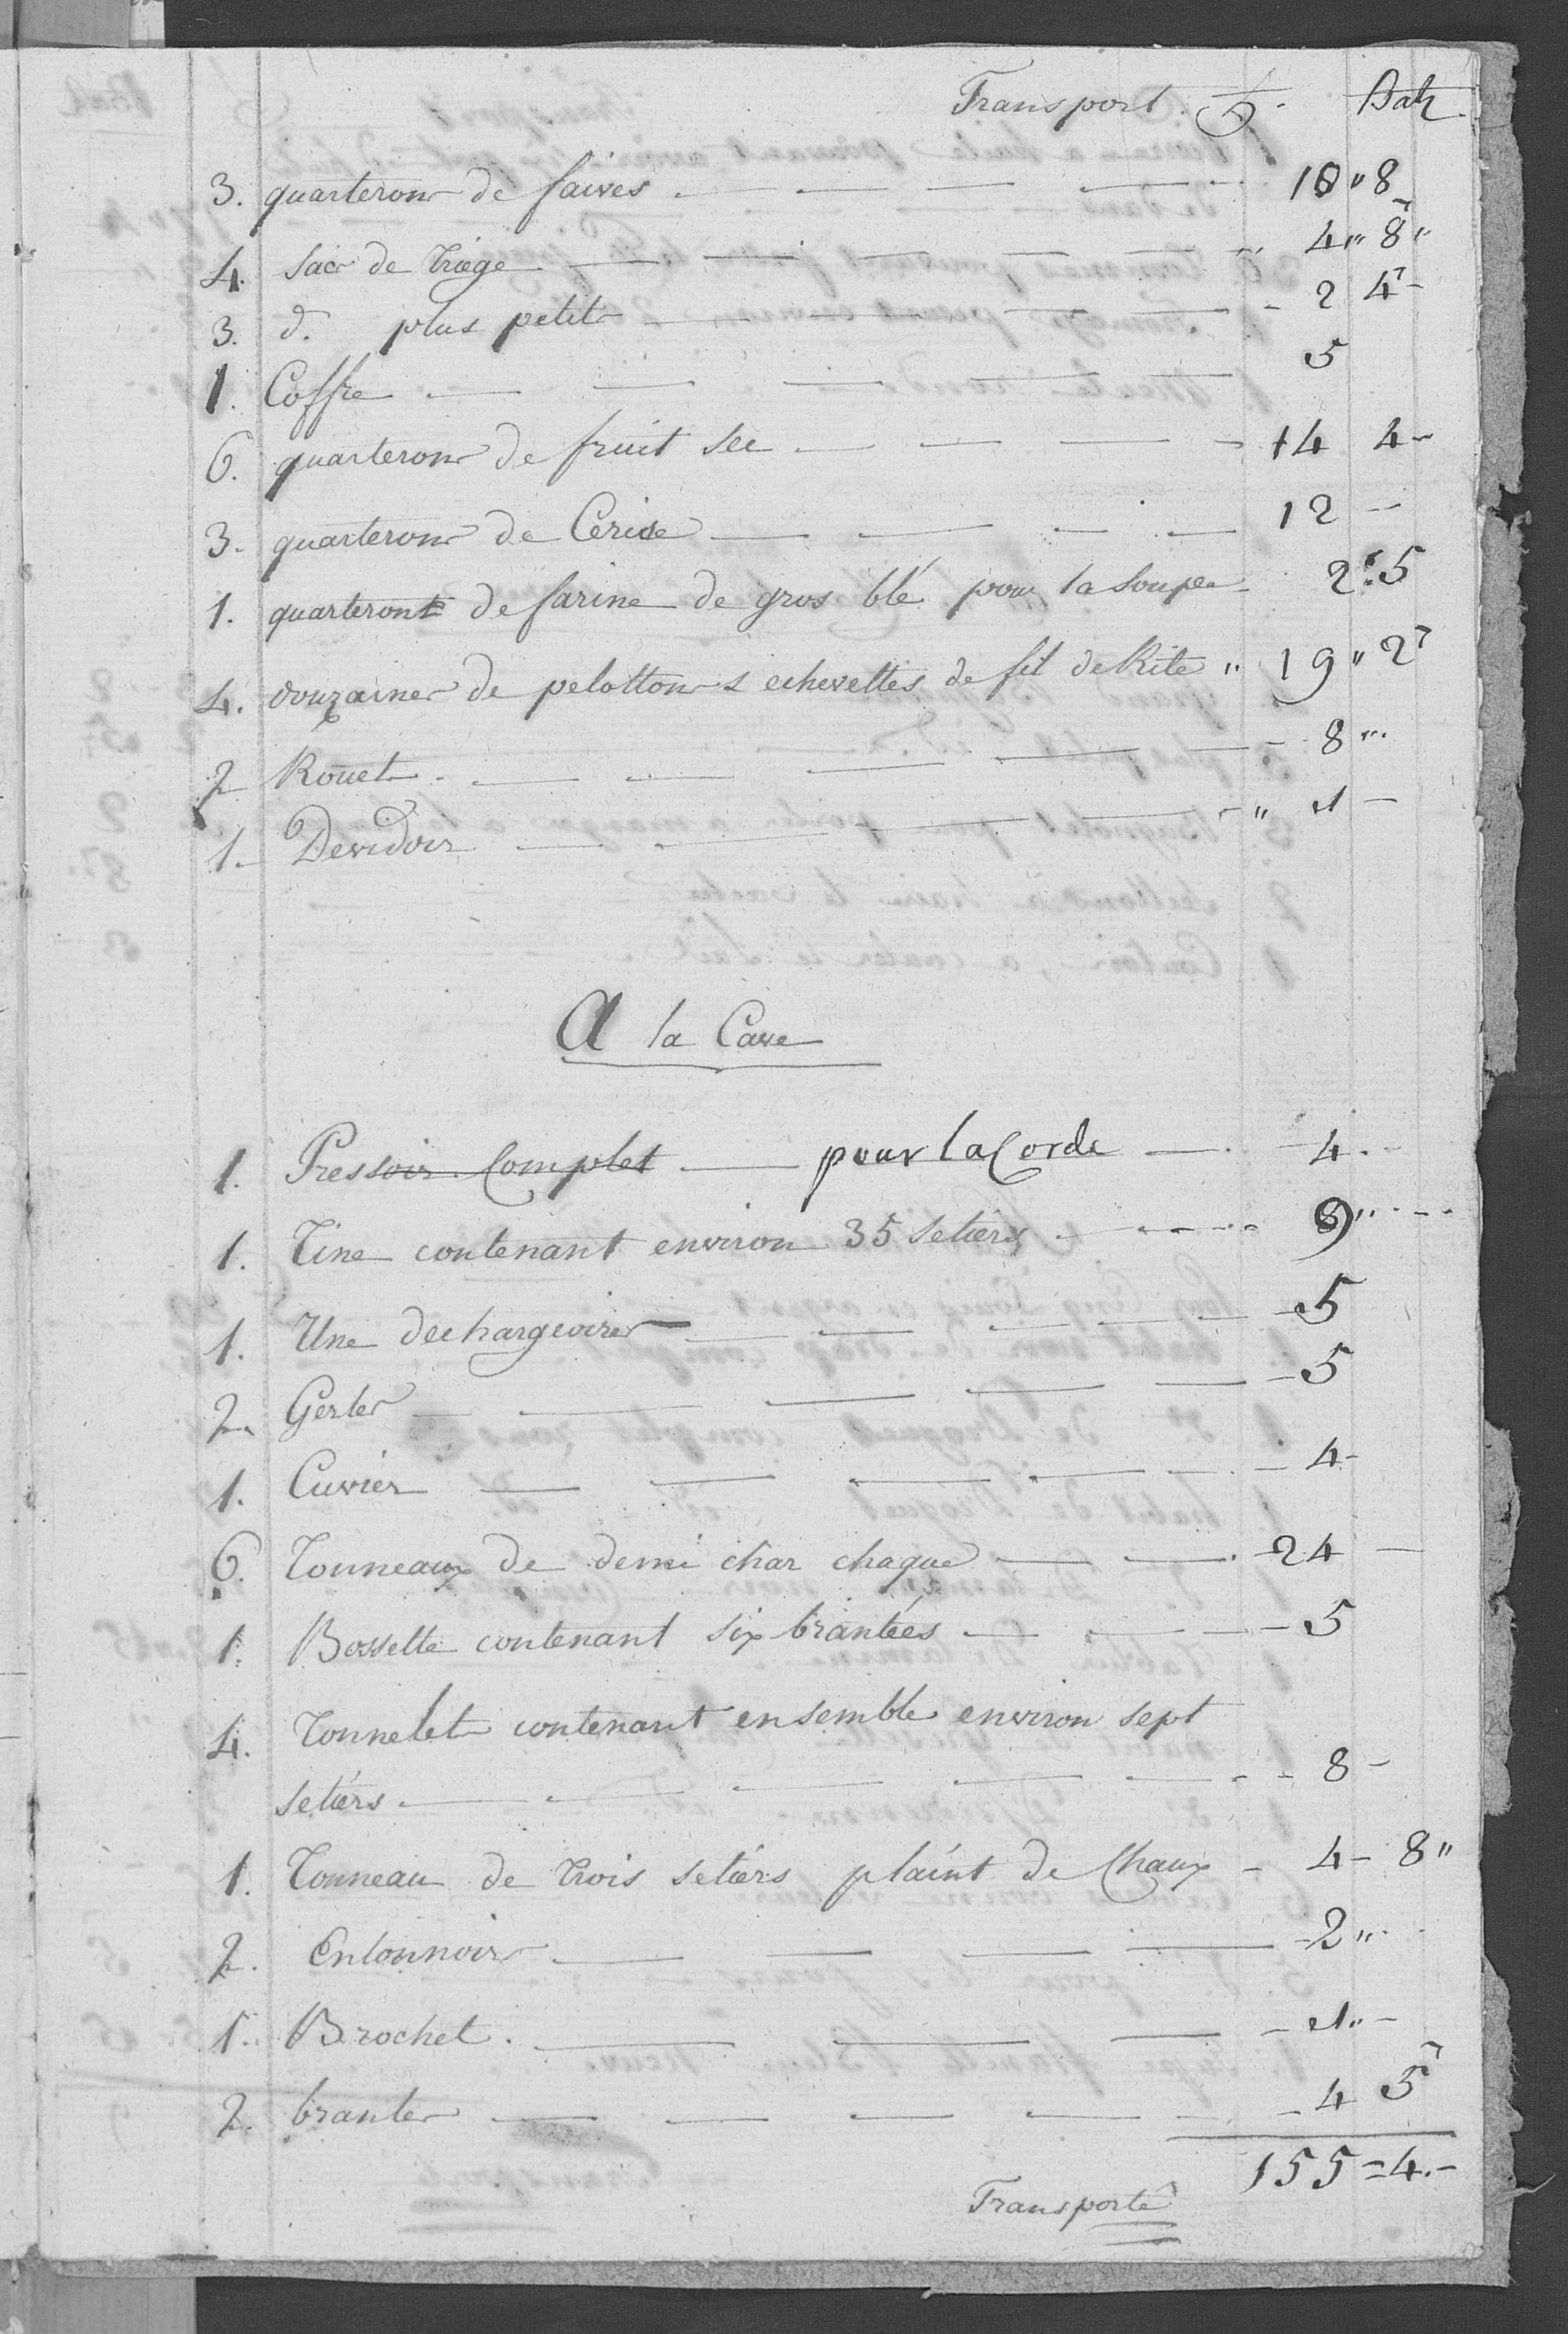 Transport. Batz
3. quarterons de faives 10 " 8
4. sacs de triége 4 " 8 "
3. d. plus petits 2 4
1. Coffre 5
6. quarterons de fruit sec 14 4
3. quarterons de Cerise 12
1. quarteront de farine de gros blé pour la soupe 2 5
4. douzaines de pelottons & echevettes de fil de Rite " 19 " 2
2 Rouets 8
1. Devidoir 1
A la Cave
1. Pressoir Complet pour la Corde 4
1. Tine contenant environ 35 setiérs 9
1. Une dechargeoires 5
2. Gerles 5
1. Cuvier 4
6. Tonneaux de demi char chaque 24
1. Bossette contenant six brantées 5
4. Tonnelets contenant ensemble environ sept
setiérs 8
1. Tonneau de trois setiérs plaint de Chaux 4 8 "
2. Entonnoirs 2
1. Brochet 1
2. brantes 4 5
155 = 4
Transporté